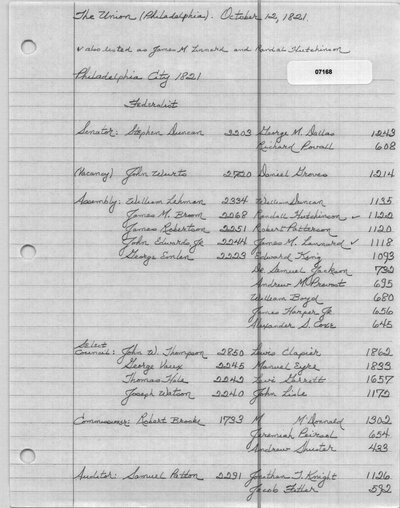 The Union (Philadelphia). October 12, 1821.
✓ also listed as James M. Linnard and Randal Hutchinson
07168
Philadelphia City 1821
Federalist
Senator: Stephen Duncan 2203 George M. Dallas 1243
Richard Povall 608
(Vacancy) John Wurts 2720 Daniel Groves 1214
Assembly: William Lehman 2334 William Duncan 1135
James M. Broom 2268 Randall Hutchinson ✓ 1122
James Robertson 2251 Robert Patterson 1120
John Edwards Jr 2244 James M. Lennard ✓ 1118
George Emlen 2223 Edward King 1093
Dr Samuel Jackson 732
Andrew M. Prevost 695
William Boyd 680
James Harper Jr 656
Alexander S. Coxe 645
Select
Council: John W. Thompson 2850 Lewis Clapier 1862
George Vaux 2245 Manuel Eyre 1833
Thomas Hale 2242 Levi Garrett 1657
Joseph Watson 2240 John Lisle 1172
Commissioner: Robert Brooke 1733 M McDonald 1302
Jeremiah 654
Andrew 433
Auditor: Samuel Patton 2231 Jonathan T. Knight 1126
Jacob 592